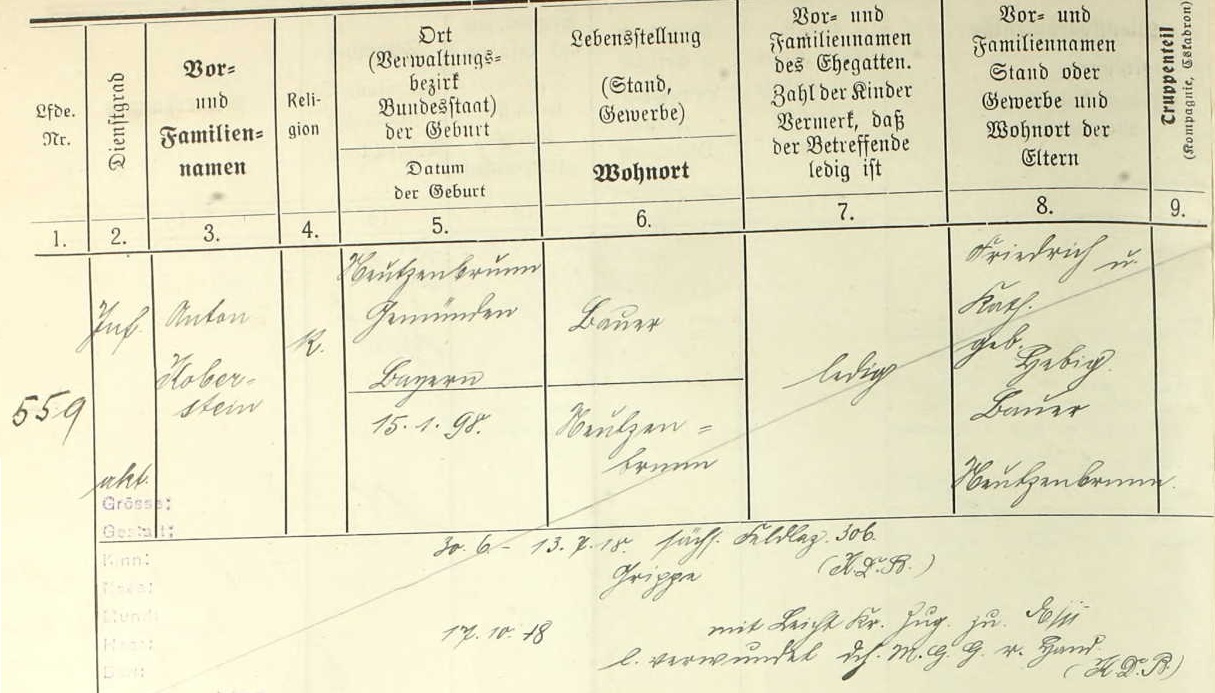 Lfde.
Nr.
Dienstgrad
Vor-
und
Familien-
namen
Reli-
gion
Ort
(Verwaltungs-
bezirk
Bundesstaat)
der Geburt
Datum
der Geburt
Lebensstellung
(Stand,
Gewerbe)
Wohnort
Vor- und
Familiennamen
des Ehegatten.
Zahl der Kinder
Vermerk, daß
der Betreffende
ledig ist
Vor- und
Familiennamen
Stand oder
Gewerbe und
Wohnort der
Eltern
Truppenteil
(Kompagnie, Eskadron)
1. 2. 3. 4. 5. 6. 7. 8. 9.
559
Inf.
akt.
Anton
Kober-
stein
K.
Neutzenbrunn
Gemünden
Bayern
15.1.98.
Bauer
Neutzen-
brunn
ledig
Friedrich u.
Kath.
geb.
Hebig.
Bauer
Neutzenbrunn.
Grösse:
Gestalt:
Kinn:
Nase:
Mund:
Haar:
Bart:
30.6 - 13.7.18. sächs. Feldlaz. 306.
Grippe (K.D.R.)
17.10.18 mit Leicht Kr. Zug. zu
l. verwundet dch. M.G.G. r. Hand.
(K.D.R.)